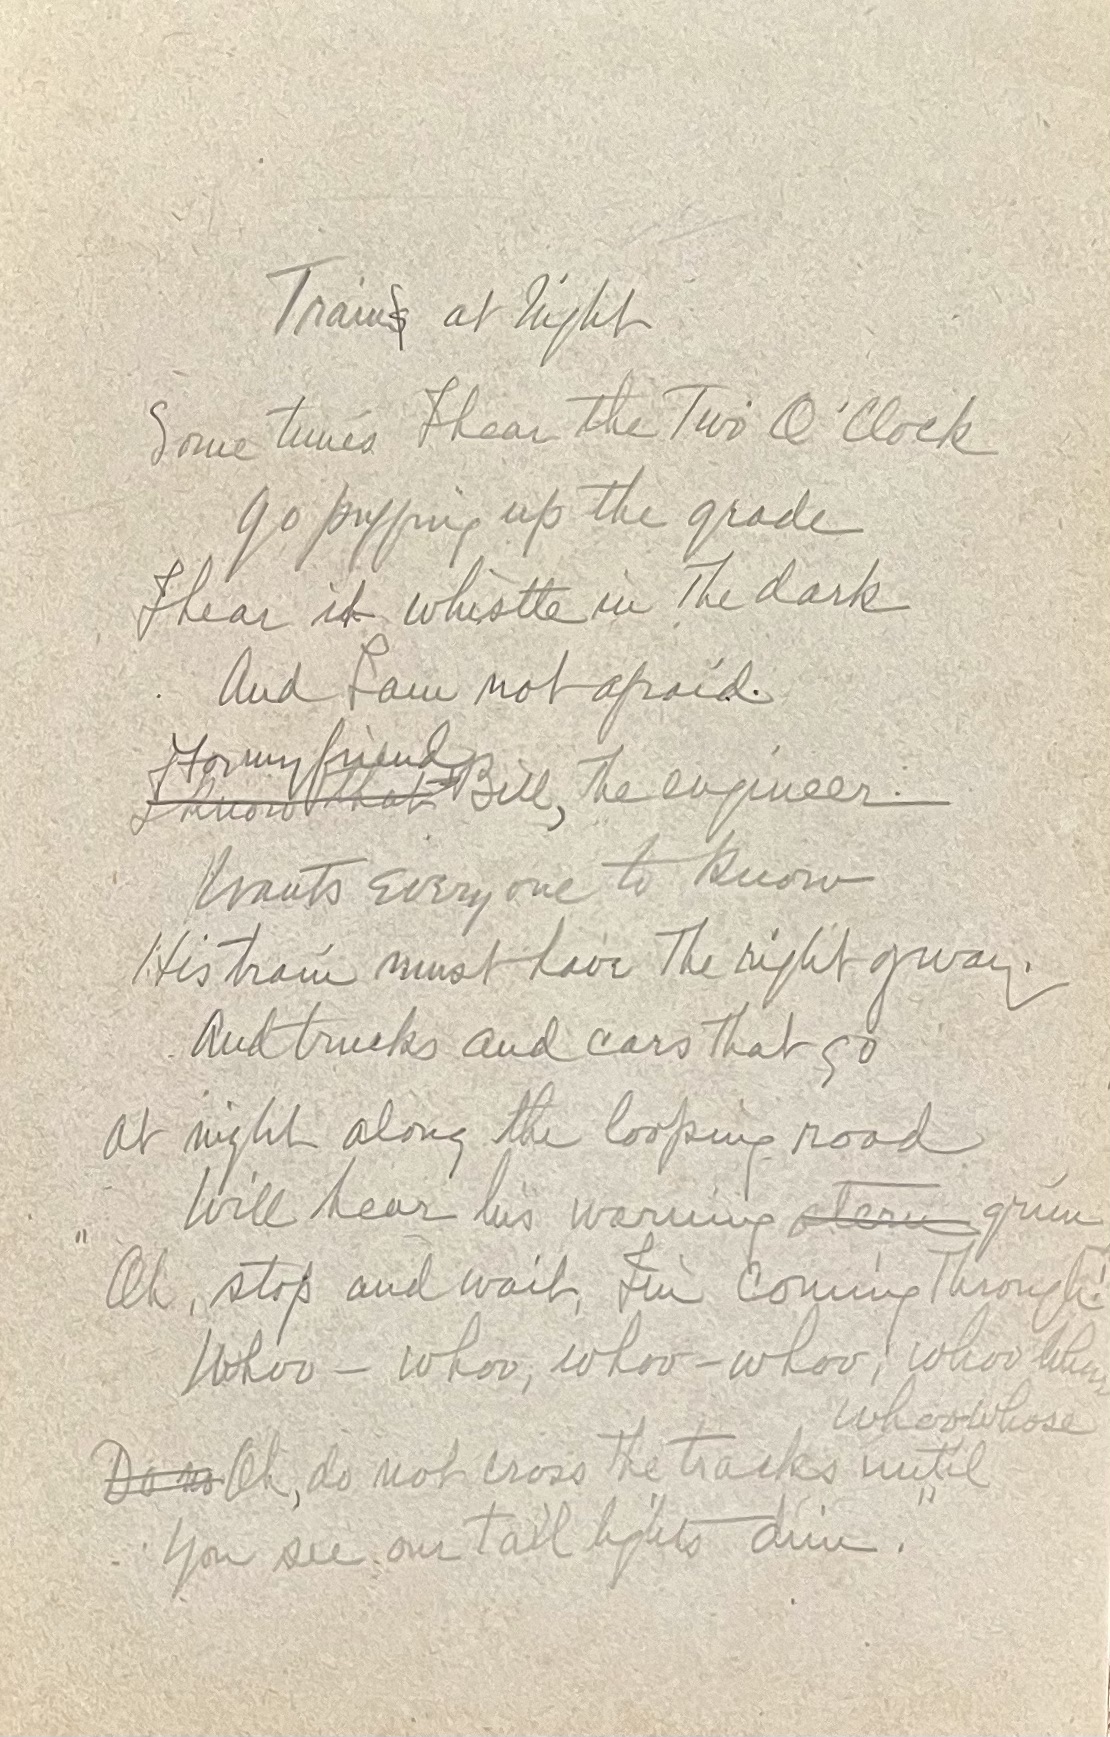 Trains at Night
Sometimes I hear the Two O'Clock
go puffing up the grade
I hear it whistle in the dark
And I am not afraid.
For my friend
I know that Bill, the engineer
Wants everyone to know
His train must have the right of way.
And trucks and cars that go
at night along the looping road
Will hear his warning stern grim
"Oh, stop and wait, I'm coming through!
Whoo - whoo, whoo - whoo, whoo
whoo
Do no Oh, do not cross the tracks until
You see our tail lights dim."